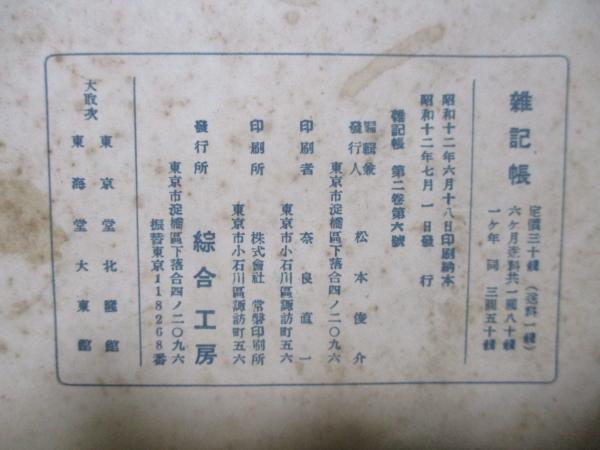 雜記帳
定價三十錢（送料一錢）
六ヶ月送料共一圓八十錢
一ヶ年 同 三圓五十錢
昭和十二年六月十八日印刷納本
昭和十二年七月一日發行
雜記帳 第二卷第六號
編輯兼
發行人 松本俊介
東京市淀橋區下落合四ノ二〇九六
印刷者 奈良直一
東京市小石川區諏訪町五六
印刷所 株式會社 常磐印刷所
東京市小石川區諏訪町五六
發行所 綜合工房
東京市淀橋區下落合四ノ二〇九六
振替東京118268番
大取次 東京堂 北隆館
東海堂 大東館